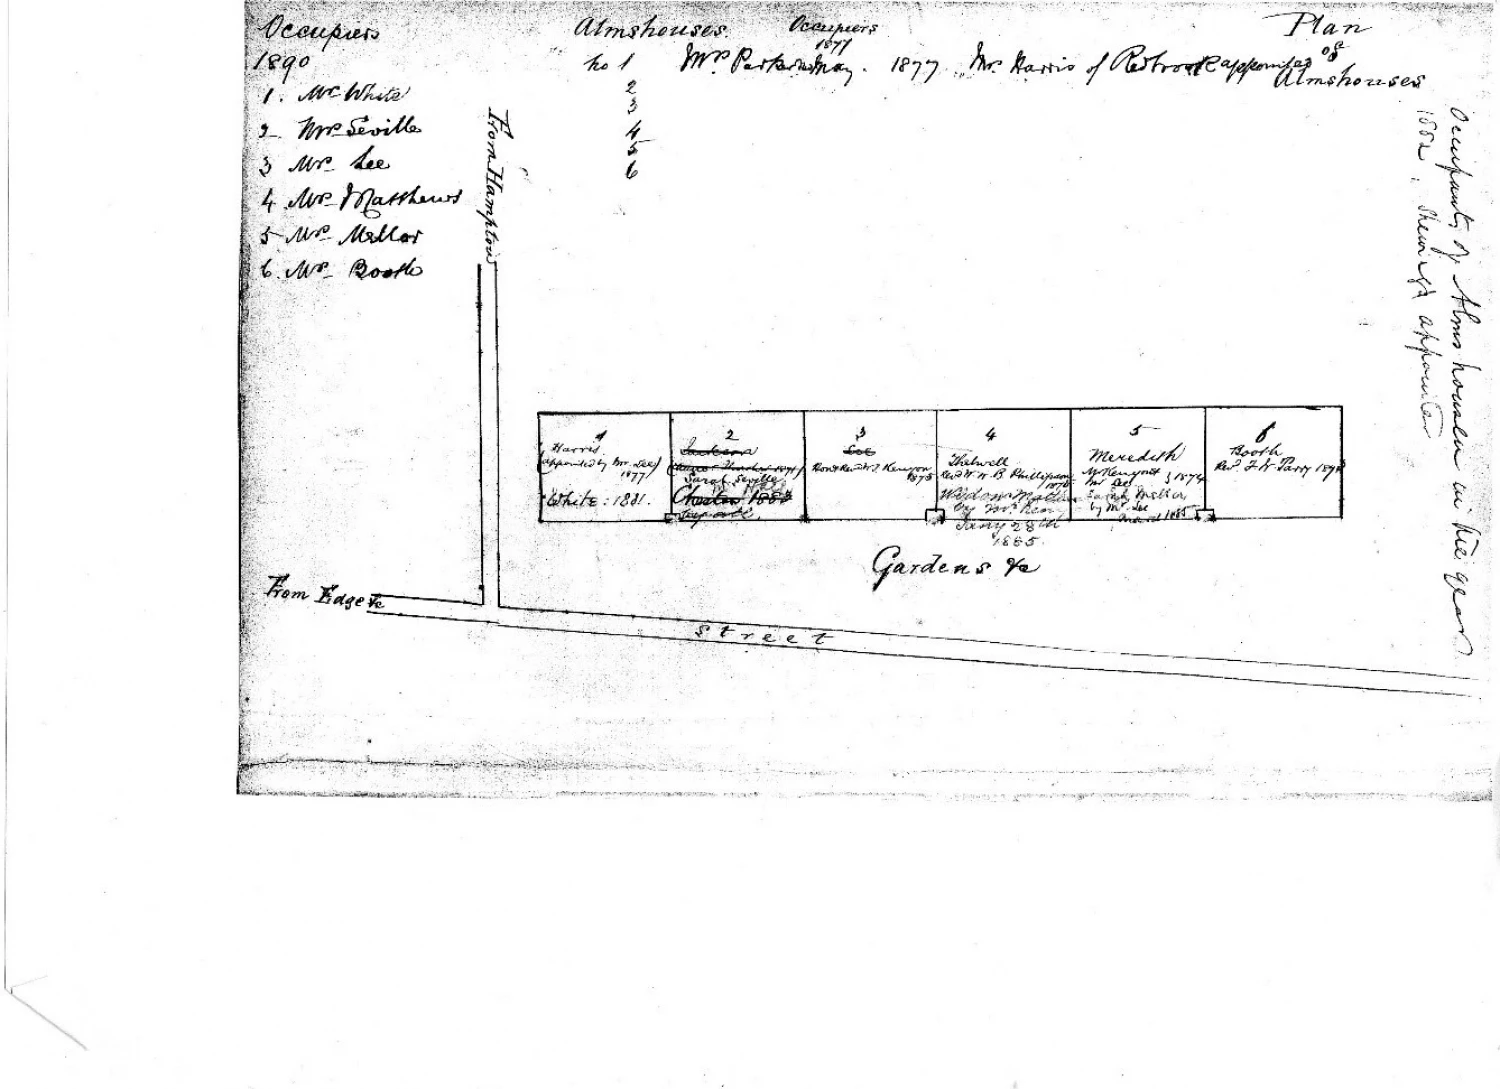 Occupiers
1890
1. Mr White
2 Mrs Seville
3 Mrs Lee
4 Mrs Matthews
5 Mrs Mellor
6. Mrs Booth
From Hampton
Almshouses.
Occupiers
1877
No 1 Mrs Parker May. 1877 Mr. Harris of Redbrook appointed
2
3
4
5
6
Plan
of
Almshouses
Occupants of Alms houses in the year
1882. Shewing appointer
1
Harris
(appointed by Mr. Lee)
1877
White: 1881.
2
Jackson
Sarah Seville
1883
3
Lee
Honble Revd W. T. Kenyon
1875
4
Thelwell
Revd W. W. B. Phillipson
1875
Widow
by Mr
Jany 28th
1885.
5
Meredith
Mr Kenyon & 1874
Mr Lee
Sarah Mellor
by Mr Lee
1885
6
Booth
Revd. F. W. Parry
Gardens &c
From Edge &c
Street